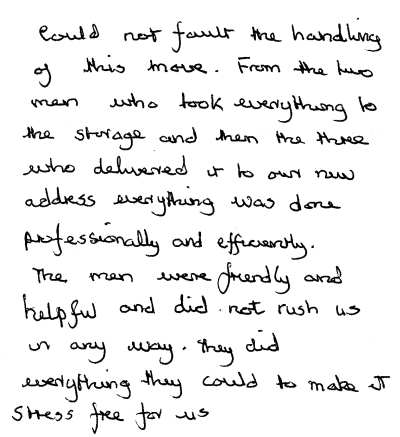 Could not fault the handling
of this move. From the two
men who took everything to
the storage and then the three
who delivered it to our new
address everything was done
professionally and efficiently.
The men were friendly and
helpful and did not rush us
in any way. They did
everything they could to make it
stress free for us